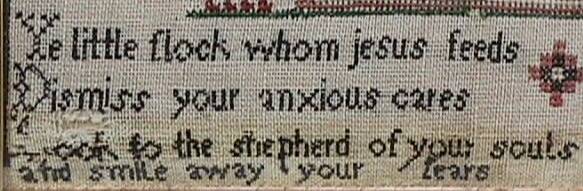 Ye little flock whom jesus feeds
Dismiss your anxious cares
Look to the shepherd of your souls
and smile away your fears